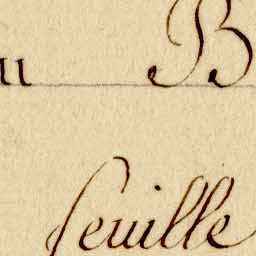 u B
feuille